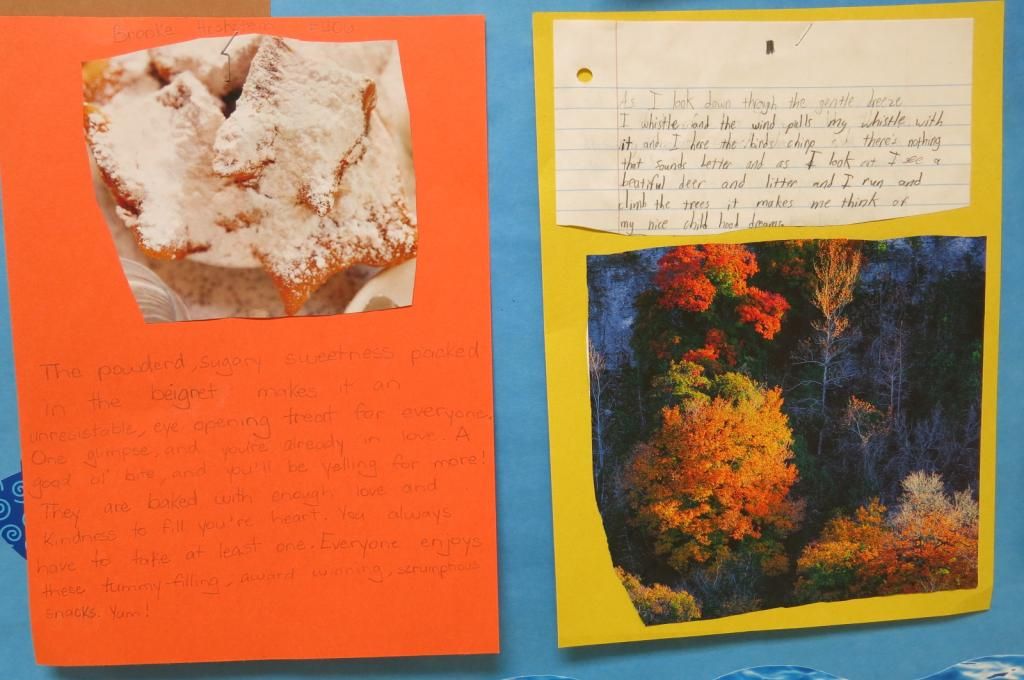 Brooke
The powderd, sugary sweetness packed
in the beignet makes it an
unresistable, eye opening treat for everyone.
One glimpse, and you're already in love. A
good ol' bite, and you'll be yelling for more!
They are baked with enough love and
Kindness to fill you're heart. You always
have to take at least one. Everyone enjoys
these tummy-filling, award winning, scrumptious
snacks. Yum!
As I look down through the gentle breeze
I whistle and the wind pulls my whistle with
it and I here the birds chirp there's nothing
that sounds better and as I look at I see a
beatiful deer and litter and I run and
climb the trees it makes me think of
my nice child hood dreams.